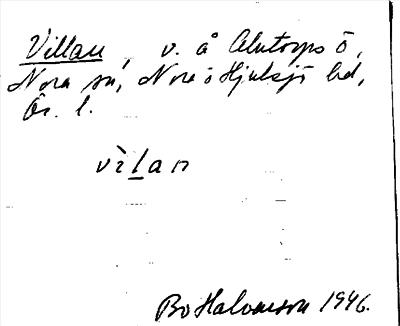 Villan, v. å Alntorps ö,
Nora sn, Nora o Hjulsjö bd,
Ör. l.
vìlan
Bo Halvarson 1946.